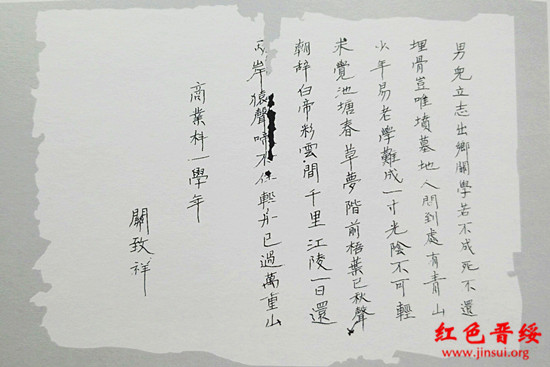 男兒立志出鄉關學若不成死不還
埋骨豈唯墳墓地人間到處有青山
少年易老學難成一寸光陰不可輕
未覺池塘春草夢階前梧葉已秋聲
朝辞白帝彩雲間千里江陵一日還
岸猿聲啼不住輕舟已過萬重山
商業科一學年
關致祥
红色晋绥
www.jinsui.org